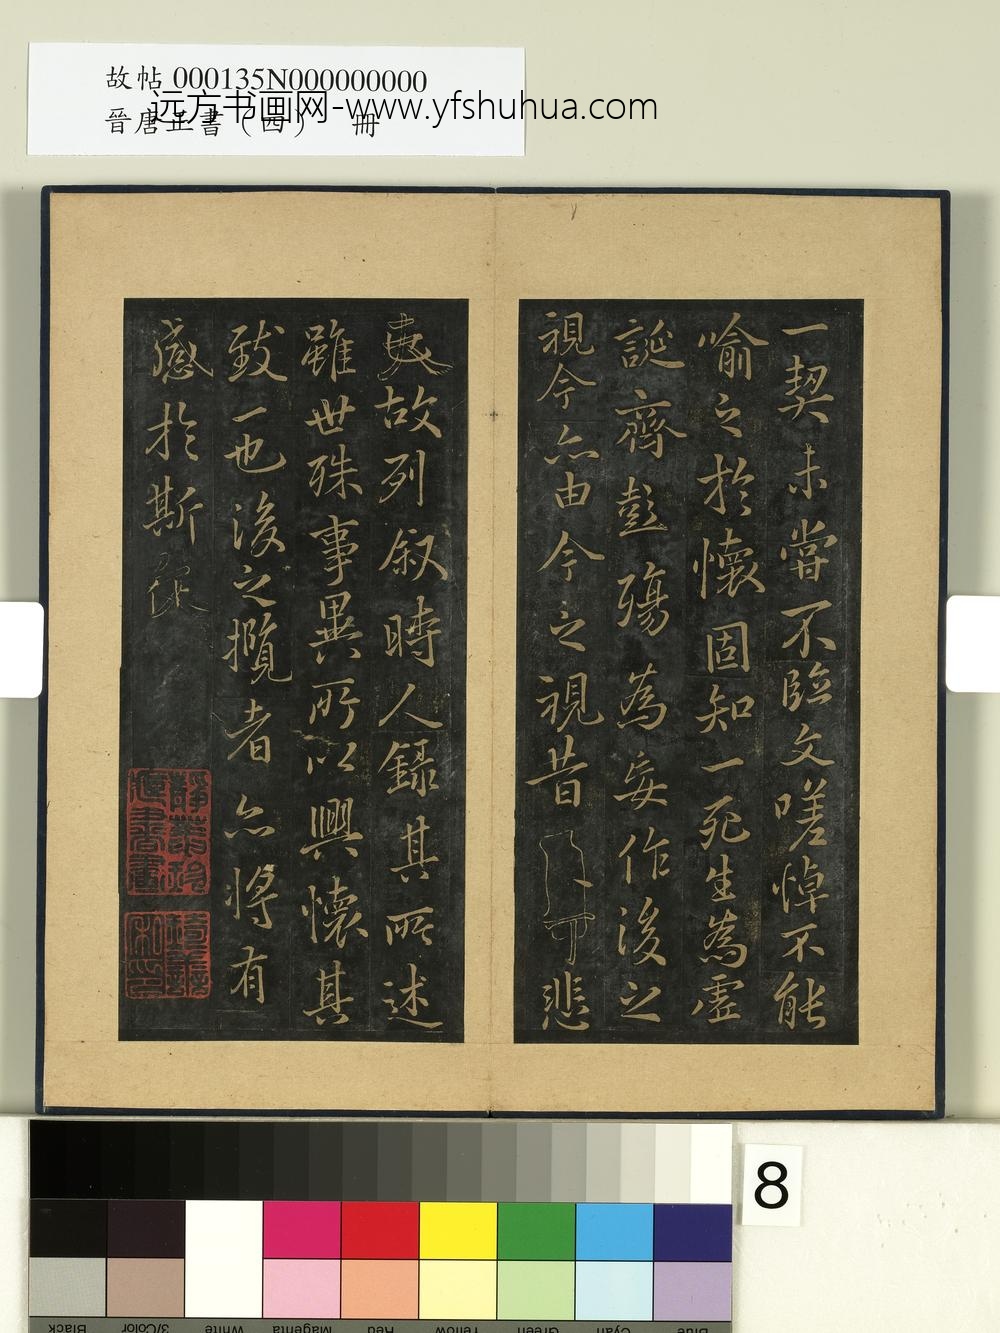 故帖 000135N000000000
晉唐正書（四） 冊
远方书画网-www.yfshuhua.com
一契未嘗不臨文嗟悼不能
喻之於懷固知一死生為虛
誕齊彭殤為妄作後之
視今亦由今之視昔
悲
夫故列叙時人錄其所述
雖世殊事異所以興懷其
致一也後之攬者亦將有
感於斯
8
Black
3/Color
White
Magenta
Red
Yellow
Green
Cyan
Blue